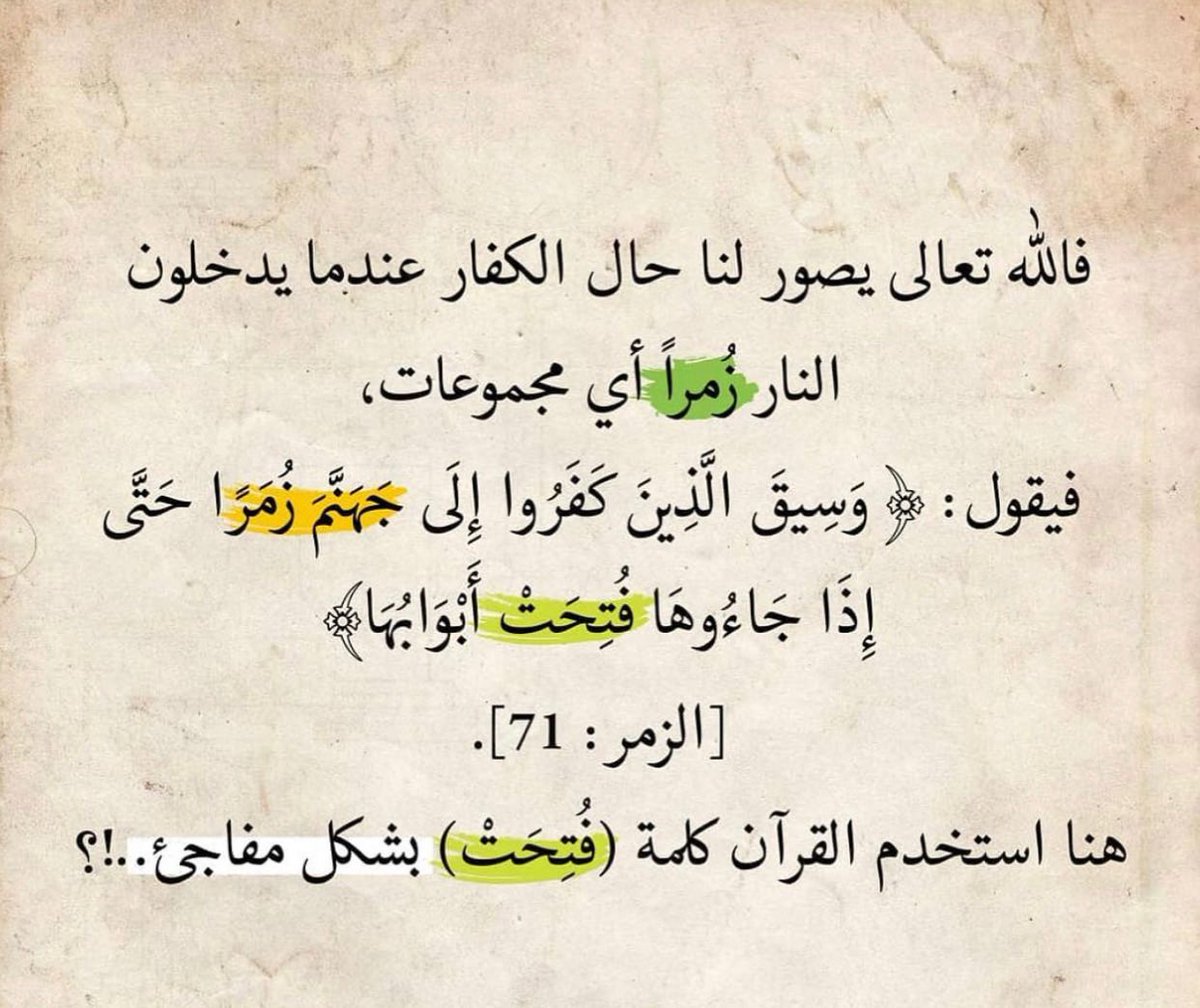 فالله تعالى يصور لنا حال الكفار عندما يدخلون
النار زُمراً أي مجموعات،
فيقول: ﴿ وَسِيقَ الَّذِينَ كَفَرُوا إِلَى جَهَنَّمَ زُمَرًا حَتَّى
إِذَا جَاءُوهَا فُتِحَتْ أَبْوَابُهَا﴾
[الزمر: 71].
هنا استخدم القرآن كلمة (فُتِحَتْ) بشكل مفاجئ..!؟